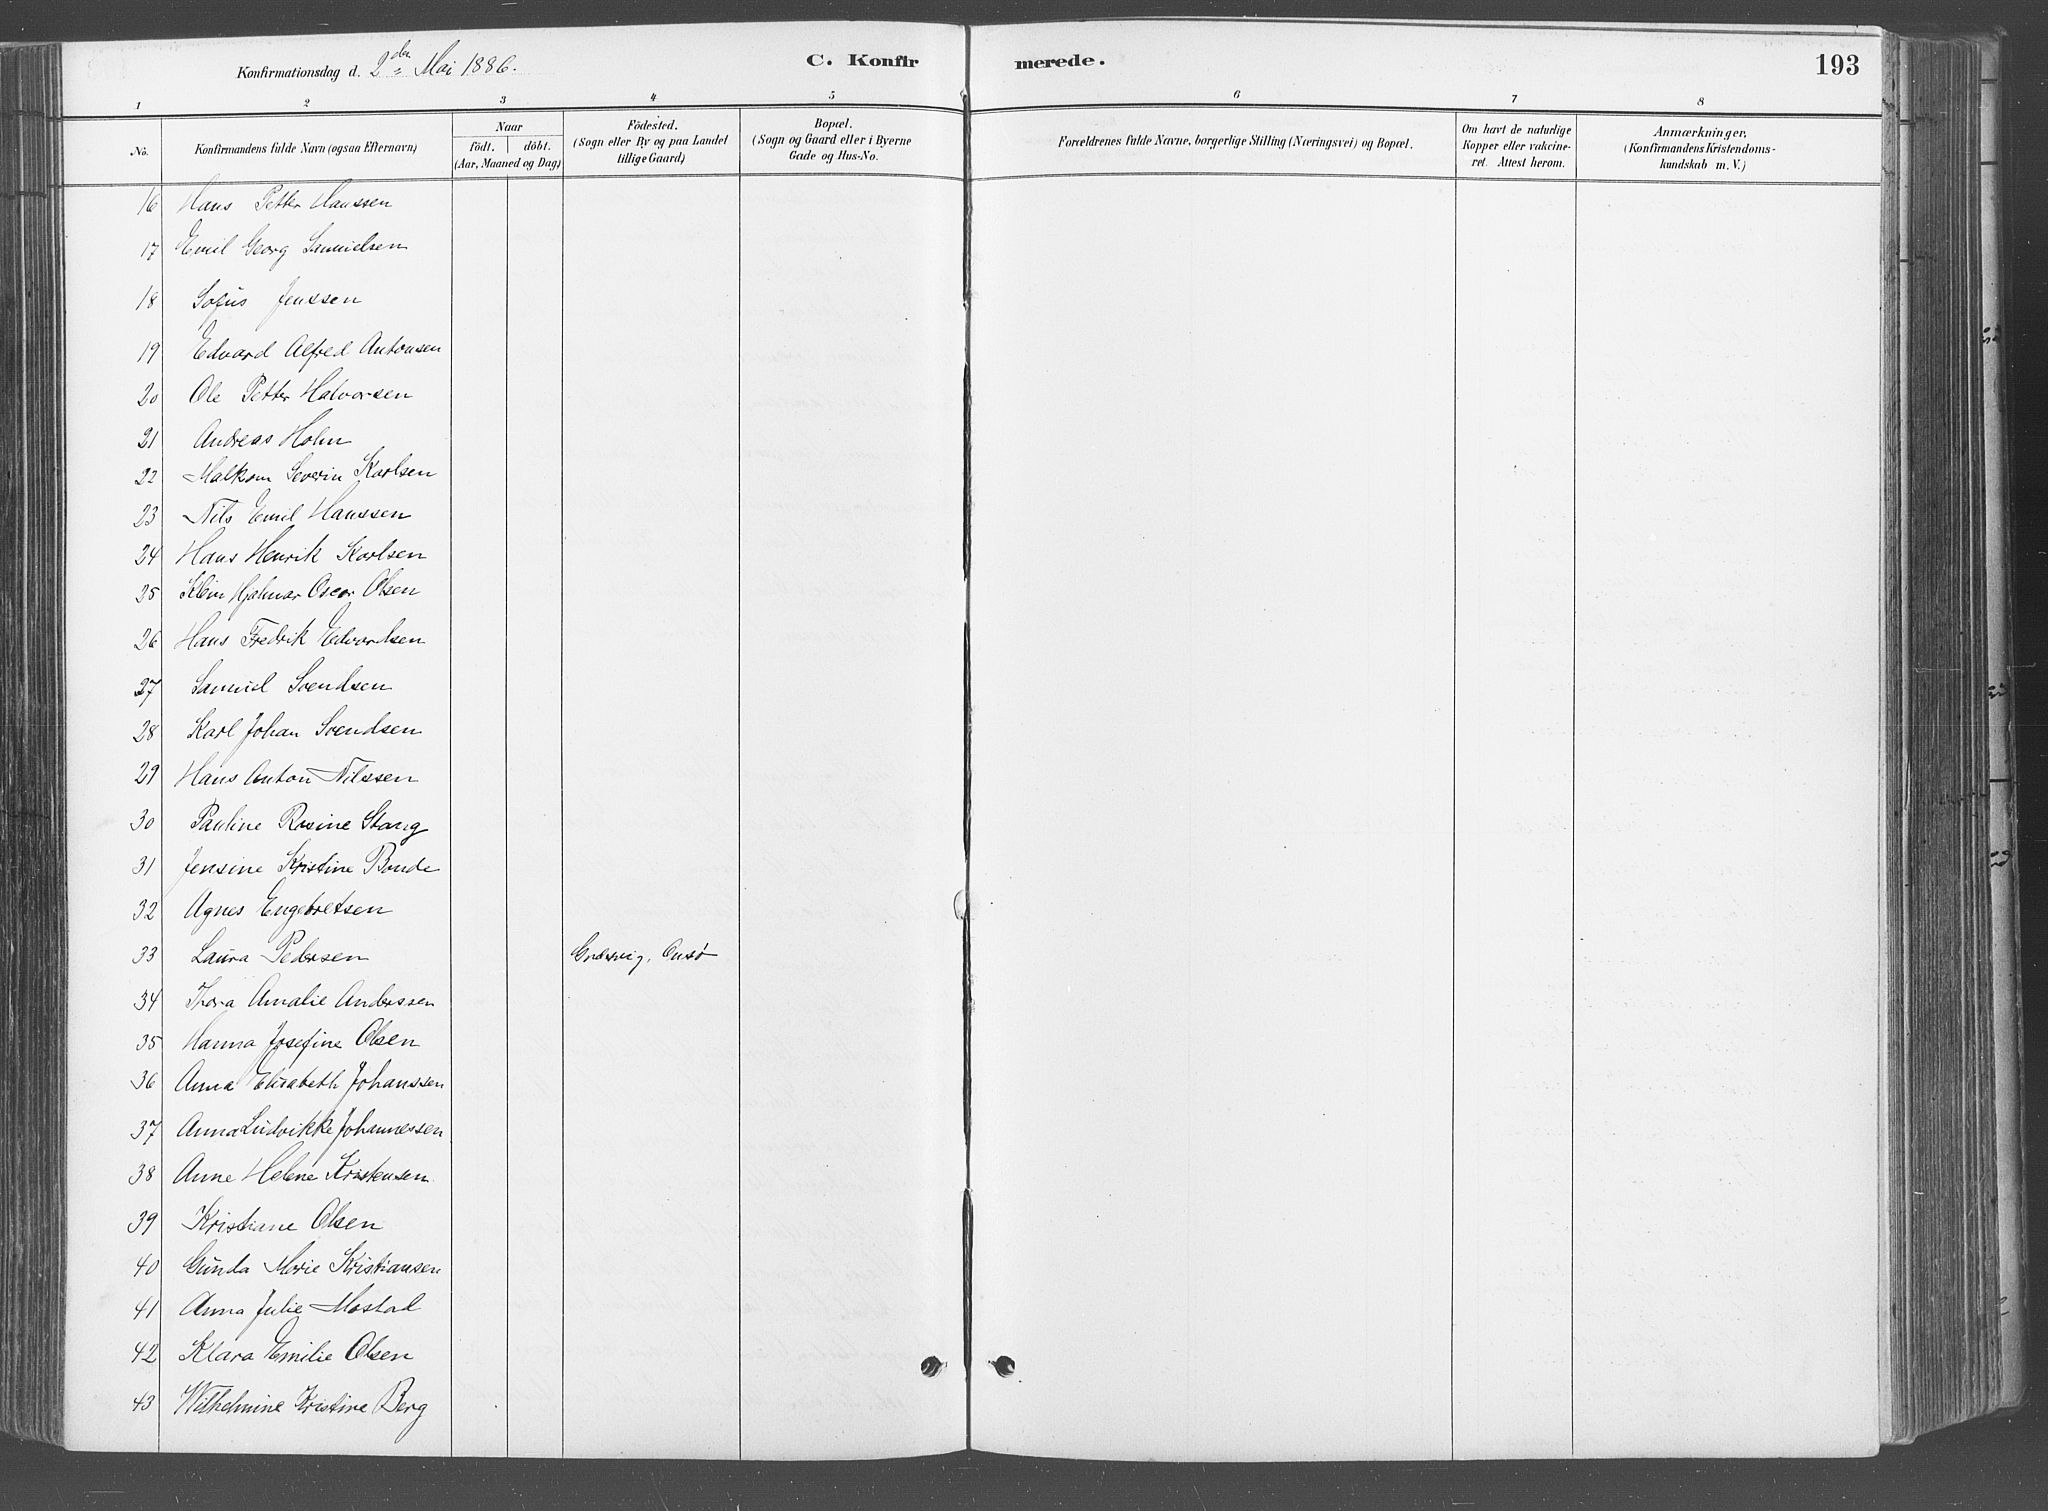 Konfirmationsdag d. 2den Mai 1886.
C. Konfirmerede.
193
1 2 3 4 5 6 7 8
No.
Konfirmandens fulde Navn (ogsaa Efternavn)
Naar
födt. döbt.
(Aar, Maaned og Dag)
Födested.
(Sogn eller By og paa Landet
tillige Gaard)
Bopæl.
(Sogn og Gaard eller i Byerne
Gade og Hus-No.
Forældrenes fulde Navne, borgerlige Stilling (Næringsvei) og Bopæl.
Om havt de naturlige
Kopper eller vakcine-
ret. Attest herom.
Anmærkninger.
(Konfirmandens Kristendoms-
kundskab m. V.)
16 Hans Petter Hanssen
17 Emil Georg Samuelsen
18 Sofus Jenssen
19 Edvard Alfred Antonsen
20 Ole Petter Halvorsen
21 Andreas Holm
22 Malkom Severin Karlsen
23 Nils Emil Hanssen
24 Hans Henrik Karlsen
25 Klein Hjalmar Oscar Olsen
26 Hans Fredrik Edvardsen
27 Samuel Svendsen
28 Karl Johan Svendsen
29 Hans Anton Nilssen
30 Pauline Rosine Stang
31 Jensine Kristine Bonde
32 Agnes Engebretsen
33 Laura Pedersen Græsvig, Onsø
34 Thora Amalie Anderssen
35 Hanna Josefine Olsen
36 Anna Elisabeth Johanssen
37 Anna Ludvikke Johannessen
38 Anne Helene Kristensen
39 Kristiane Olsen
40 Gunda Marie Kristiansen
41 Anna Julie Mostad
42 Klara Emilie Olsen
43 Wilhelmine Kristine Berg